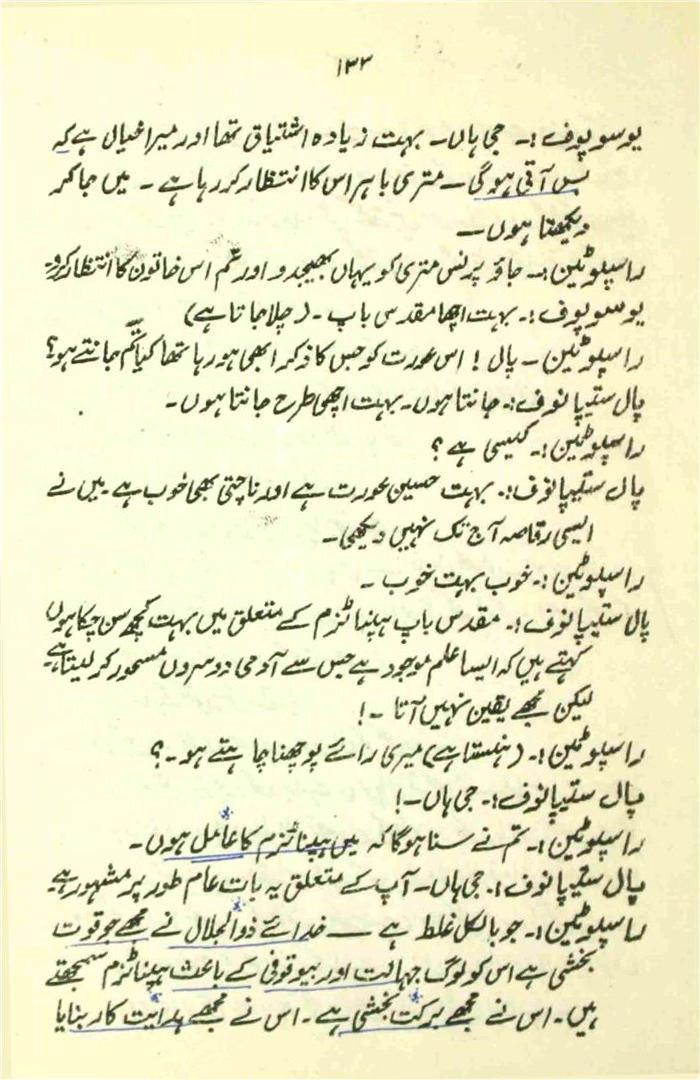 ۱۳۳
یوسوپوف:۔ جی ہاں۔ بہت زیادہ اشتیاق تھا اور میرا خیال ہے کہ
بس آتی ہوگی۔ متری باہر اس کا انتظار کر رہا ہے۔ میں جا کر
دیکھتا ہوں۔
راسپوٹین:۔ جاؤ پرنس متری کو یہاں بھیجدو اور تم اس خاتون کا انتظار کرو۔
یوسوپوف:۔ بہت اچھا مقدس باپ۔ (چلا جاتا ہے)
راسپوٹین۔ پال! اس عورت کو جس کا ذکر ابھی ہو رہا تھا کیا تم جانتے ہو؟
پال ستیپانوف:۔ جانتا ہوں۔ بہت اچھی طرح جانتا ہوں۔
راسپوٹین:۔ کیسی ہے؟
پال ستیپانوف:۔ بہت حسین عورت ہے اور ناچتی بھی خوب ہے۔ میں نے
ایسی رقاصہ آج تک نہیں دیکھی۔
راسپوٹین:۔ خوب بہت خوب۔
پال ستیپانوف:۔ مقدس باپ ہپناٹزم کے متعلق میں بہت کچھ سن چکا ہوں
کہتے ہیں کہ ایسا علم موجود ہے جس سے آدمی دوسروں مسحور کر لیتا ہے۔
لیکن مجھے یقین نہیں آتا۔!
راسپوٹین:۔ (ہنستا ہے) میری رائے پوچھنا چاہتے ہو۔؟
پال ستیپانوف:۔ جی ہاں۔!
راسپوٹین:۔ تم نے سنا ہوگا کہ میں ہپناٹزم کا عامل ہوں۔
پال ستیپانوف:۔ جی ہاں۔ آپ کے متعلق یہ بات عام طور پر مشہور ہے۔
راسپوٹین:۔ جو بالکل غلط ہے — خدائے ذوالجلال نے مجھے جو قوت
بخشی ہے اس کو لوگ جہالت اور بیوقوفی کے باعث ہپناٹزم سمجھتے
ہیں۔ اس نے مجھے برکت بخشی ہے۔ اس نے مجھے ہدایت کار بنایا